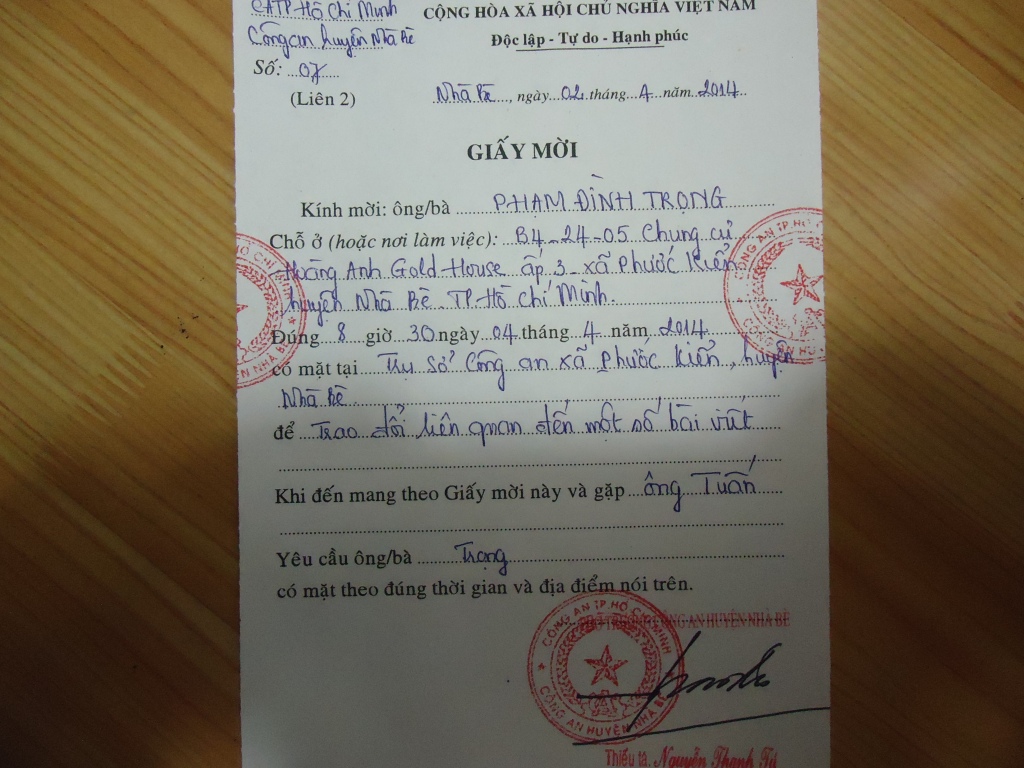 CATP Hồ Chí Minh
CỘNG HÒA XÃ HỘI CHỦ NGHĨA VIỆT NAM
Công an huyện Nhà Bè
Độc lập - Tự do - Hạnh phúc
Số: 07
(Liên 2)
Nhà Bè, ngày 02 tháng 4 năm 2014
GIẤY MỜI
Kính mời: ông/bà PHẠM ĐÌNH TRỌNG
Chỗ ở (hoặc nơi làm việc): B4-24-05 Chung cư
Hoàng Anh Gold House ấp 3 - xã Phước Kiển
huyện Nhà Bè TP Hồ Chí Minh.
Đúng 8 giờ 30 ngày 04 tháng 4 năm 2014
có mặt tại Trụ Sở Công an xã Phước Kiển, huyện
Nhà Bè
để Trao đổi liên quan đến một số bài viết
Khi đến mang theo Giấy mời này và gặp ông Tuấn
Yêu cầu ông/bà Trọng
có mặt theo đúng thời gian và địa điểm nói trên.
CÔNG AN HUYỆN NHÀ BÈ
CÔNG AN TP. HỒ CHÍ MINH
CÔNG AN HUYỆN NHÀ BÈ
Thiếu tá. Nguyễn Thanh Tú